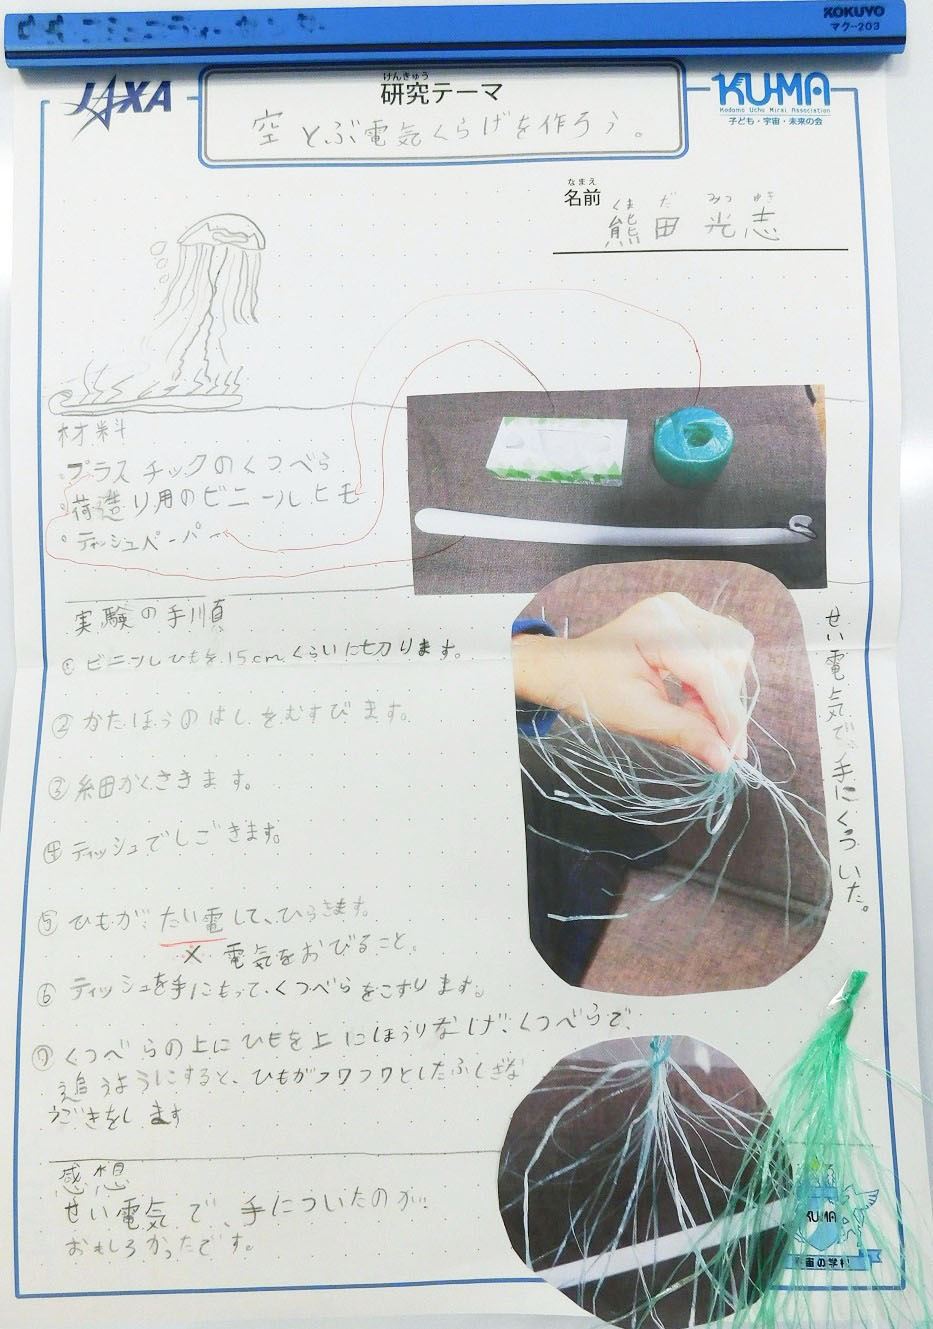 KOKUYO
マク-203
JAXA
けんきゅう
研究テーマ
空とぶ電気くらげを作ろう。
KU-MA
Kodomo Uchu Mirai Association
子ども・宇宙・未来の会
なまえ
名前
くま だ みつ ゆき
熊田 光志
材料
プラスチックのくつべら
荷造り用のビニールヒモ
ティッシュペーパー
実験の手順
① ビニールひもを15cmくらいに切ります。
② かたほうのはしをむすびます。
③ 細かくさきます。
④ ティッシュでしごきます。
⑤ ひもが、たい電して、ひらきます。
× 電気をおびること。
⑥ ティッシュを手にもって、くつべらをこすります。
⑦ くつべらの上にひもを上にほうりなげ、くつべらで、
追うようにすると、ひもがフワフワとしたふしぎな
うごきをします
せい電気で、手にくっついた。
感想
せい電気で、手についたのが、
おもしろかったです。
KU-MA
宙の学校